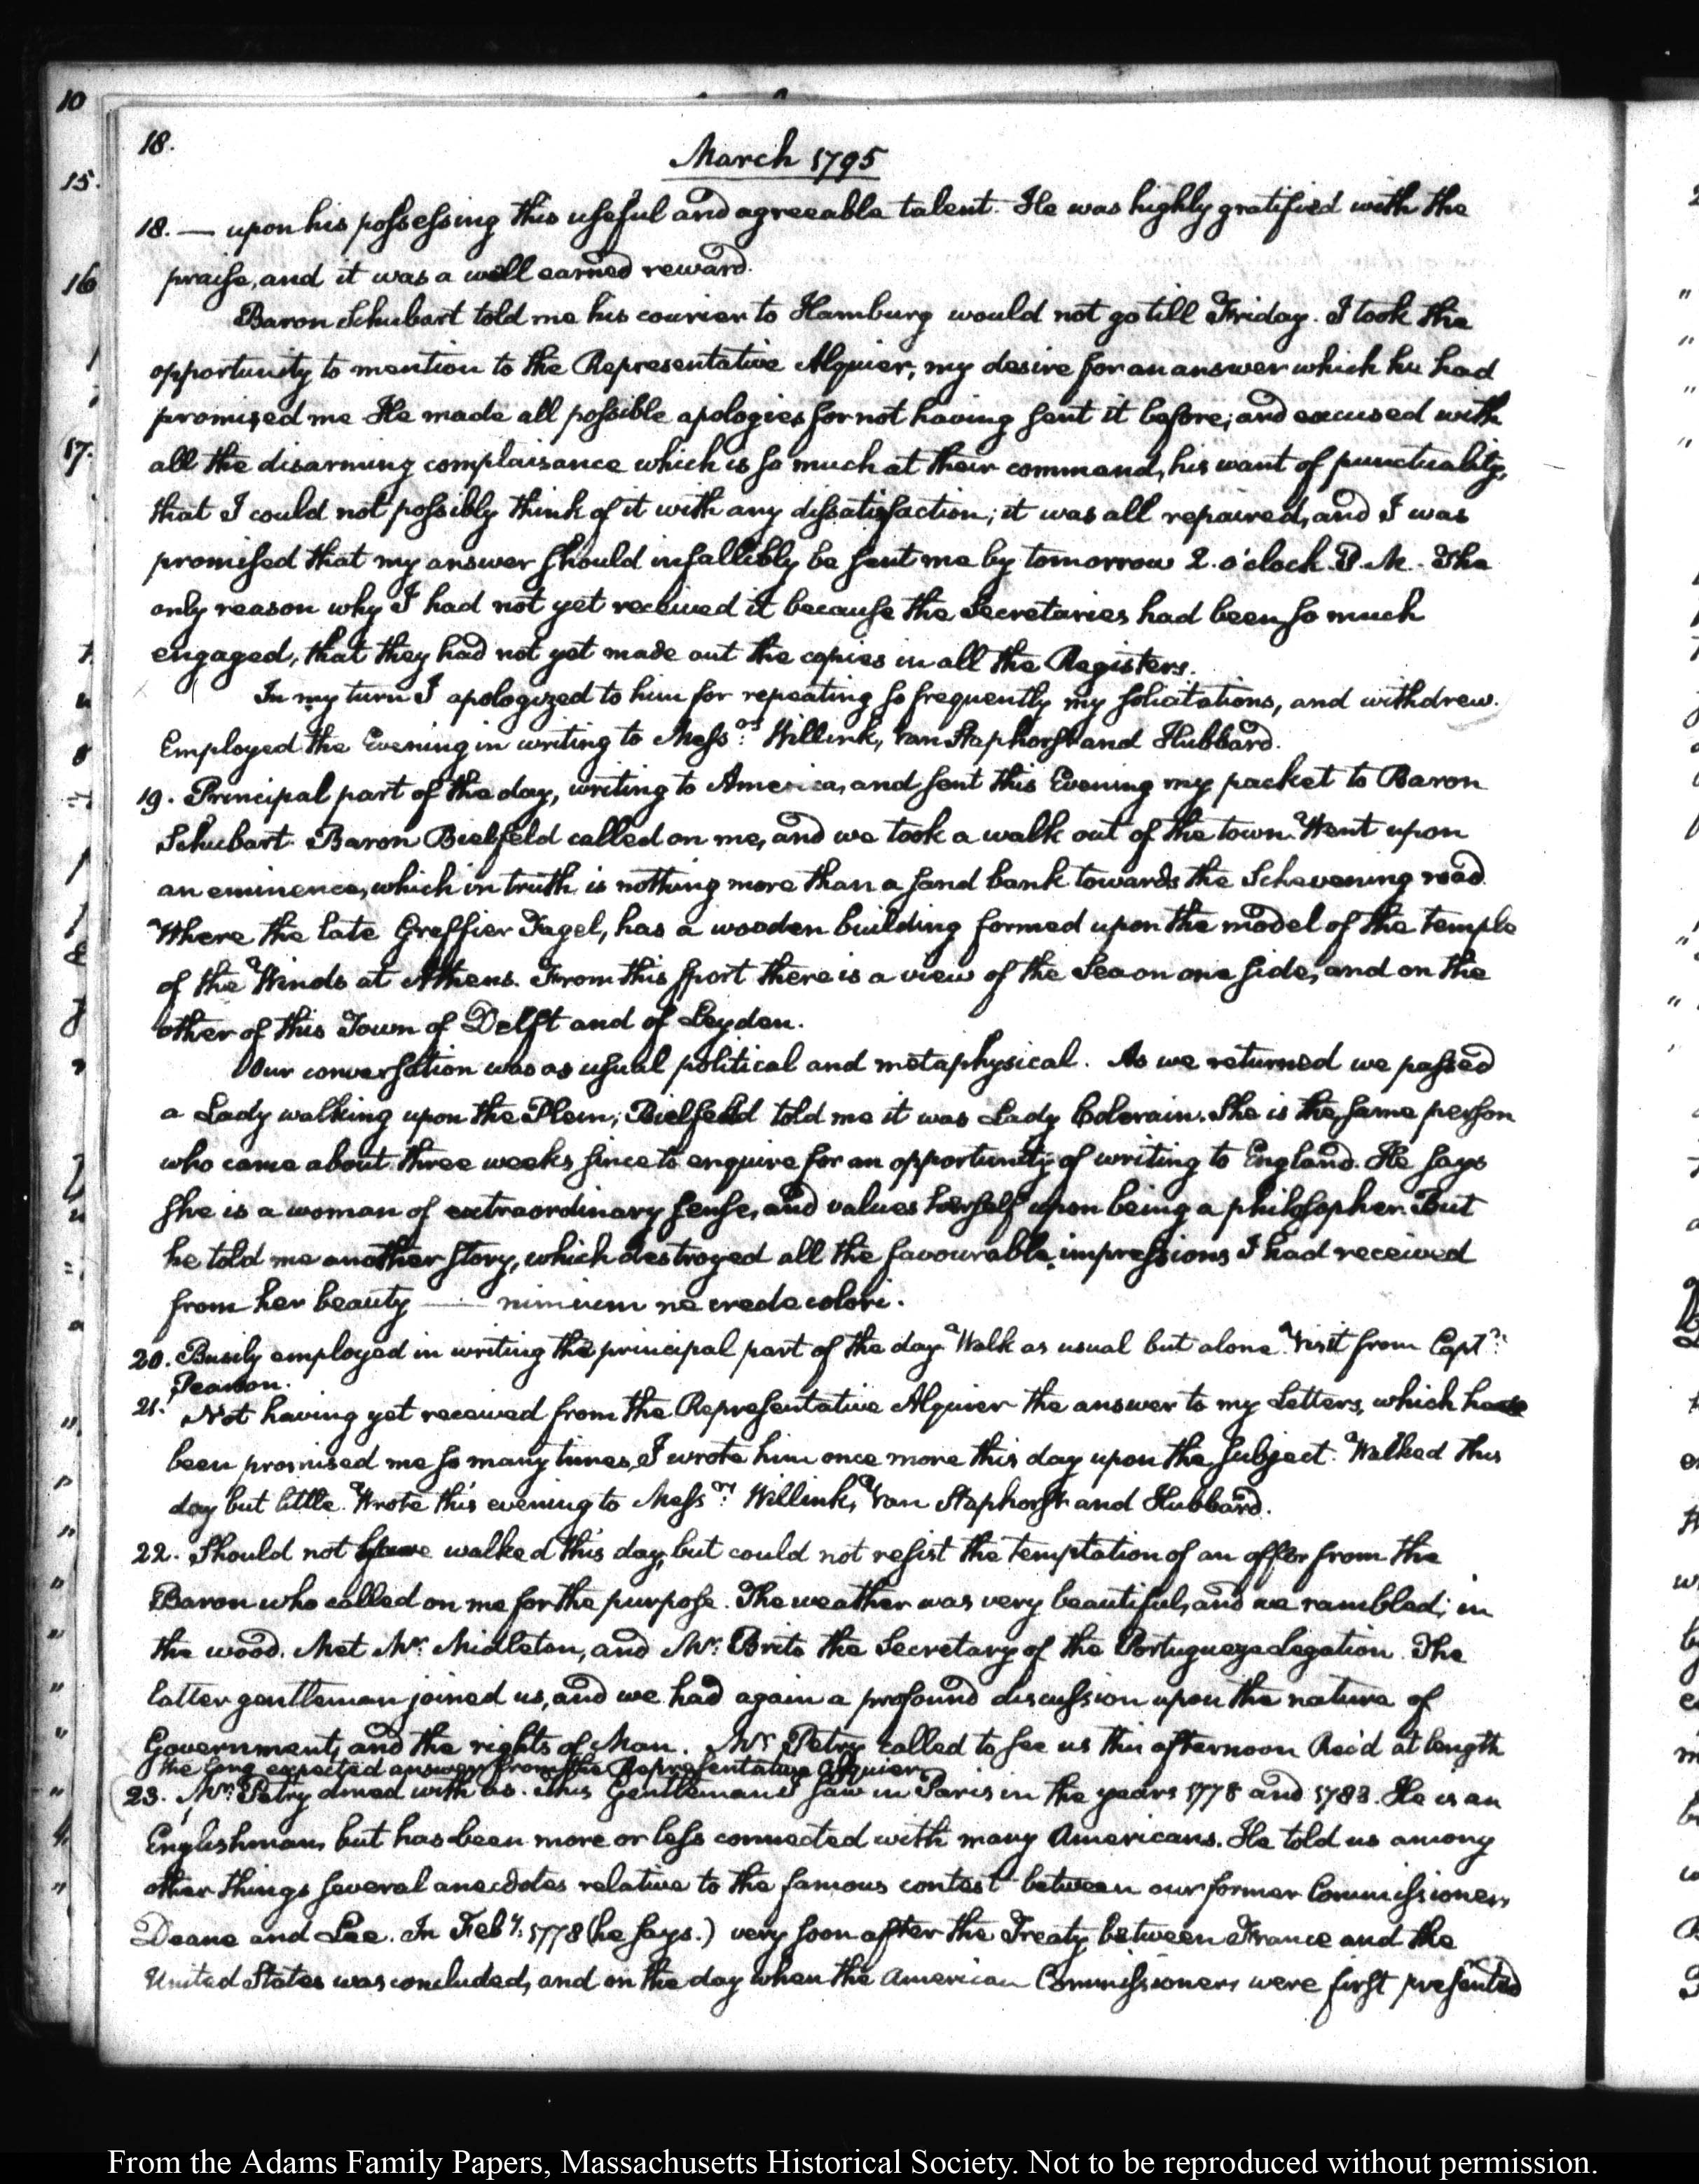 10
15.
16
17.
18.
March 1795
18. — upon his possessing this useful and agreeable talent. He was highly gratified with the
praise, and it was a well earned reward.
Baron Schubart told me his courier to Hamburg would not go till Friday. I took the
opportunity to mention to the Representative Alquier, my desire for an answer which he had
promised me He made all possible apologies for not having sent it before; and excused with
all the disarming complaisance which is so much at their command, his want of punctuality,
that I could not possibly think of it with any dissatisfaction; it was all repaired, and I was
promised that my answer should infallibly be sent me by tomorrow 2. o'clock P. M. The
only reason why I had not yet received it because the Secretaries had been so much
engaged, that they had not yet made out the copies in all the Registers.
In my turn I apologized to him for repeating so frequently my solicitations, and withdrew.
Employed the Evening in writing to Messrs: Willink, Van Staphorst and Hubbard.
19. Principal part of the day, writing to America, and sent this Evening my packet to Baron
Schubart. Baron Bielfeld called on me, and we took a walk out of the town. Went upon
an eminence, which in truth is nothing more than a sand bank towards the Schevening road.
Where the late Greffier Fagel, has a wooden building formed upon the model of the temple
of the Winds at Athens. From this sport there is a view of the Sea on one side, and on the
other of this Town of Delft and of Leyden.
Our conversation was as usual political and metaphysical. As we returned we passed
a Lady walking upon the Plein; Bielfeld told me it was Lady Colerain. She is the same person
who came about three weeks since to enquire for an opportunity of writing to England. He says
she is a woman of extraordinary sense, and values herself upon being a philosopher. But
he told me another story, which destroyed all the favourable impressions I had received
from her beauty — nimium ne crede colori.
20. Busily employed in writing the principal part of the day. Walk as usual but alone. Visit from Captn:
Pearson.
21. Not having yet received from the Representative Alquier the answer to my Letters, which have
been promised me so many times, I wrote him once more this day upon the subject. Walked this
day but little. Wrote this evening to Messrs: Willink, Van Staphorst and Hubbard.
22. Should not have walked this day, but could not resist the temptation of an offer from the
Baron who called on me for the purpose. The weather was very beautiful, and we rambled; in
the wood. Met Mr. Midleton, and Mr. Brito the Secretary of the Portugueze Legation. The
latter gentleman joined us, and we had again a profound discussion upon the nature of
Government, and the rights of Man. Mr. Petry called to see us this afternoon Rec'd at length
the long expected answer from the Representative Alquier.
23. Mr. Petry dined with us. This Gentleman I saw in Paris in the years 1778 and 1783. He is an
Englishman, but has been more or less connected with many Americans. He told us among
other things several anecdotes relative to the famous contest between our former Commissioners
Deane and Lee. In Feby. 1778 (he says.) very soon after the Treaty between France and the
United States was concluded, and on the day when the American Commissioners were first presented
From the Adams Family Papers, Massachusetts Historical Society. Not to be reproduced without permission.